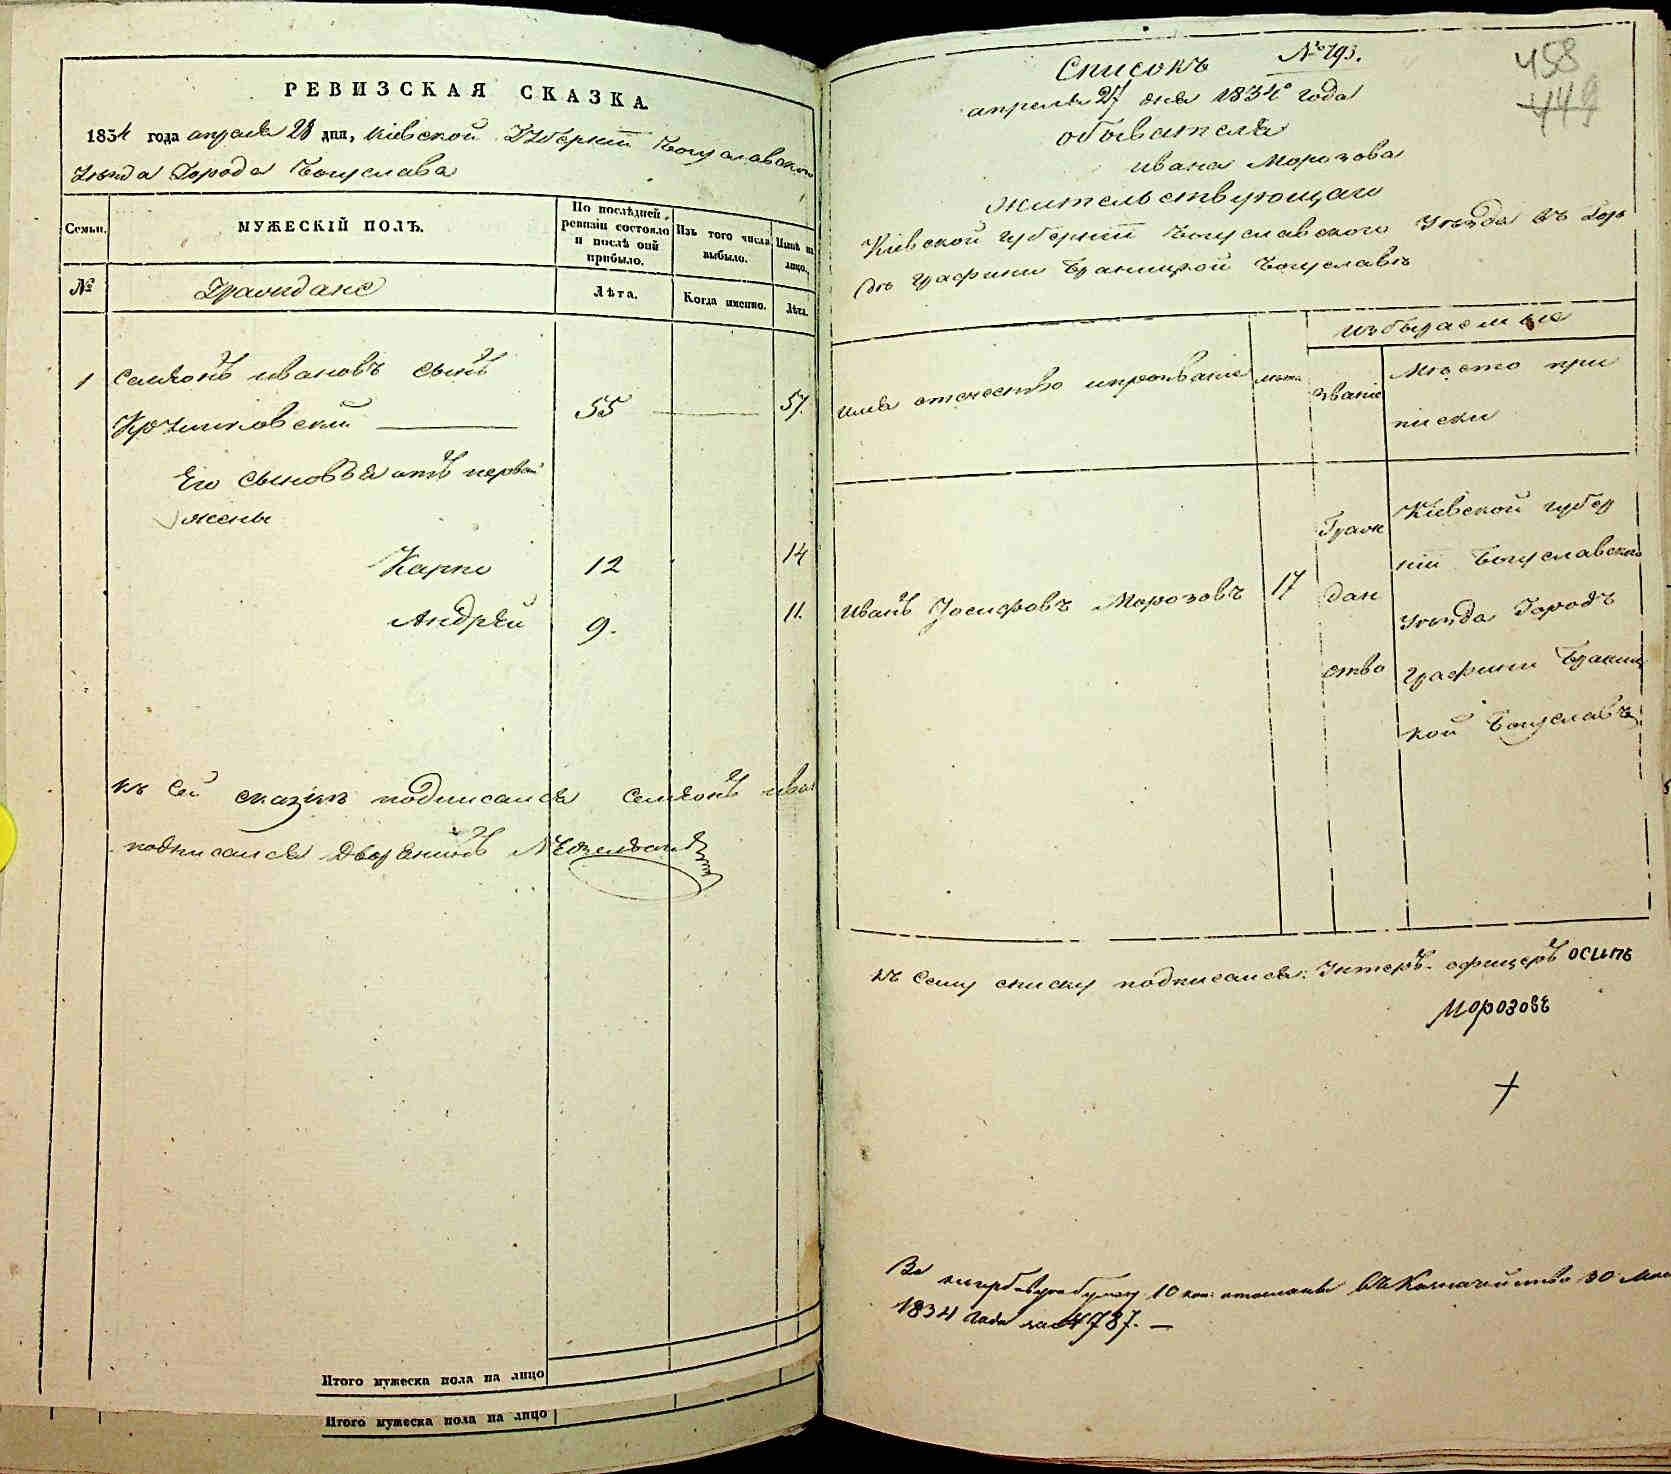 РЕВИЗСКАЯ СКАЗКА.
1834 года апреля 28 дня, Кіевской Губерніи Богуславского
Уезда Города Богуслава
Семьи.
МУЖЕСКІЙ ПОЛЪ.
По послѣдней
ревизіи состояло
и послѣ оній
прибыло.
Изъ того числа
выбыло.
Нынѣ на
лицо.
№
Граждане
Лѣта.
Когда именно.
Лѣта.
1 Семіонъ ивановъ сынъ
55 57.
Его сыновья отъ первой
жены
Карпо 12 14
Андрѣй 9. 11.
къ сей сказке подписался Семіонъ ива
подписался дворенинъ
Итого мужеска пола на лицо
Итого мужеска пола на лицо
458
449
Списокъ №193.
апреля 27 дня 1834 года
обывателя
ивана Морозова
жительствующаго
Кіевской губерніи Богуславского Уезда въ Горо
дѣ графини Браницкой Богуславѣ
имя отечество ипрозвание
лета
избираемые
званіе
Место при
писки
Иванъ Іосифовъ Морозовъ 17
Граж
дан
ство
Кіевской губер
ніи Богуславского
уезда Городъ
графини Браниц
кой Богуславъ
къ сему списку подписался: Унтеръ-офицеръ осипъ
Морозовъ
За гербовую бумагу 10 коп: отосланы въ Казначейство 30 Мая
1834 года за № 4787. —